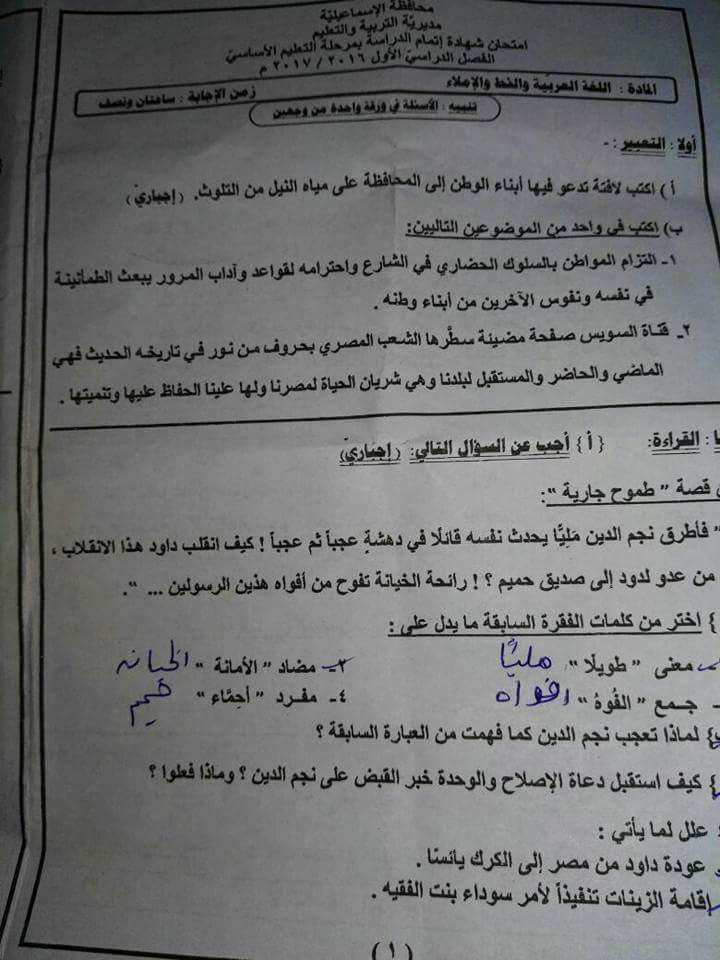 محافظة الإسماعيلية
مديرية التربية والتعليم
امتحان شهادة إتمام الدراسة بمرحلة التعليم الأساسي
الفصل الدراسي الأول ٢٠١٦ / ٢٠١٧ م
المادة : اللغة العربية والخط والإملاء زمن الإجابة : ساعتان ونصف
تنبيه : الأسئلة في ورقة واحدة من وجهين
أولا : التعبير : -
أ ) اكتب لافتة تدعو فيها أبناء الوطن إلى المحافظة على مياه النيل من التلوث. (إجباري)
ب) اكتب في واحد من الموضوعين التاليين:
١- التزام المواطن بالسلوك الحضاري في الشارع واحترامه لقواعد وآداب المرور يبعث الطمأنينة
في نفسه ونفوس الآخرين من أبناء وطنه .
٢- قناة السويس صفحة مضيئة سطَّرها الشعب المصري بحروف من نور في تاريخه الحديث فهي
الماضي والحاضر والمستقبل لبلدنا وهي شريان الحياة لمصرنا ولها علينا الحفاظ عليها وتنميتها .
: القراءة: { أ } أجب عن السؤال التالي: (إجباري)
قصة " طموح جارية ":
" فأطرق نجم الدين مَلِيًّا يحدث نفسه قائلًا في دهشةٍ عجباً ثم عجباً ! كيف انقلب داود هذا الانقلاب ،
من عدو لدود إلى صديق حميم ؟ ! رائحة الخيانة تفوح من أفواه هذين الرسولين ... ".
} اختر من كلمات الفقرة السابقة ما يدل على :
معنى " طويلًا " مليًّا ٢- مضاد " الأمانة " الخيانه
- جمع " الفُوهُ " افواه ٤- مفرد " أحِمَّاء " حميم
} لماذا تعجب نجم الدين كما فهمت من العبارة السابقة ؟
} كيف استقبل دعاة الإصلاح والوحدة خبر القبض على نجم الدين ؟ وماذا فعلوا ؟
علل لما يأتي :
عودة داود من مصر إلى الكرك يائسًا .
إقامة الزينات تنفيذاً لأمر سوداء بنت الفقيه .
( ١ )